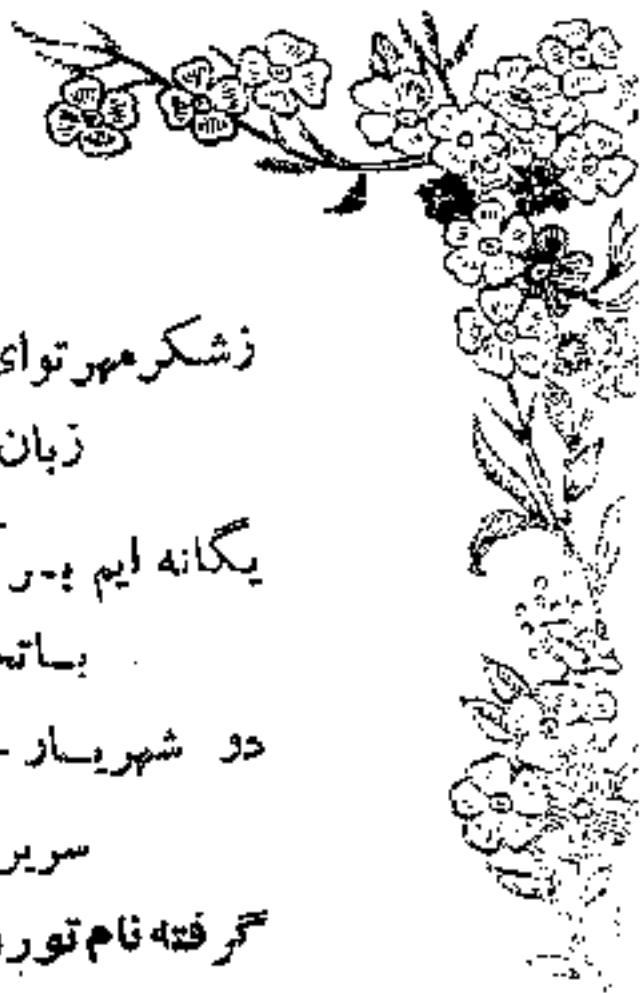 زشکر مهر توای
زبان
یگانه ایم بـر
دو شهریـار
سریر
گرفته نام تو